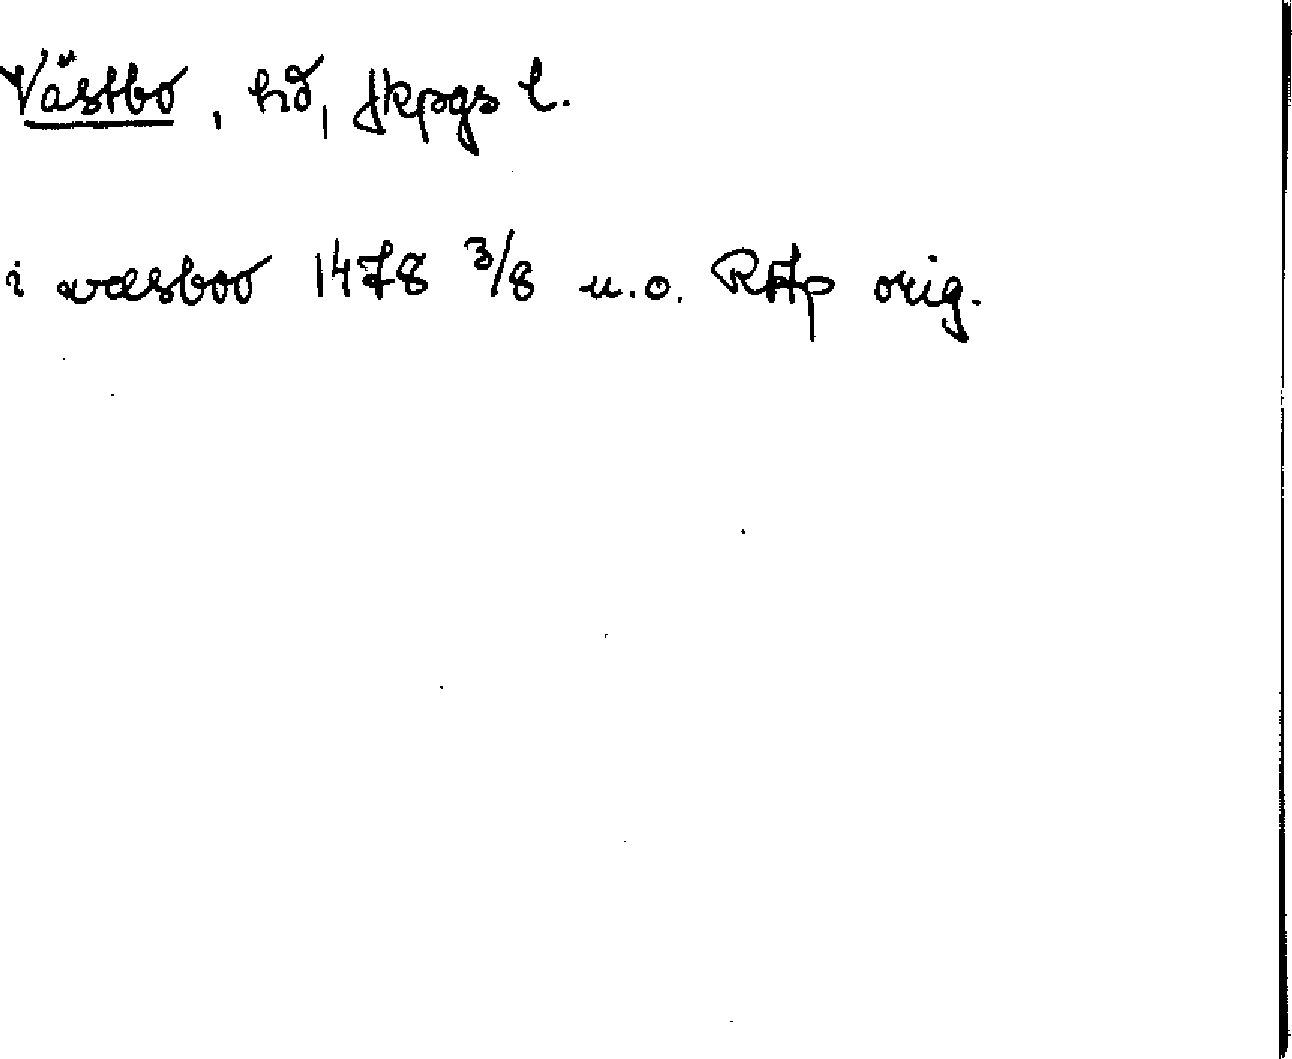 Västbo, hd, Jkpgs l.
i wæsboo 1478 3/8 u.o. RAp orig.